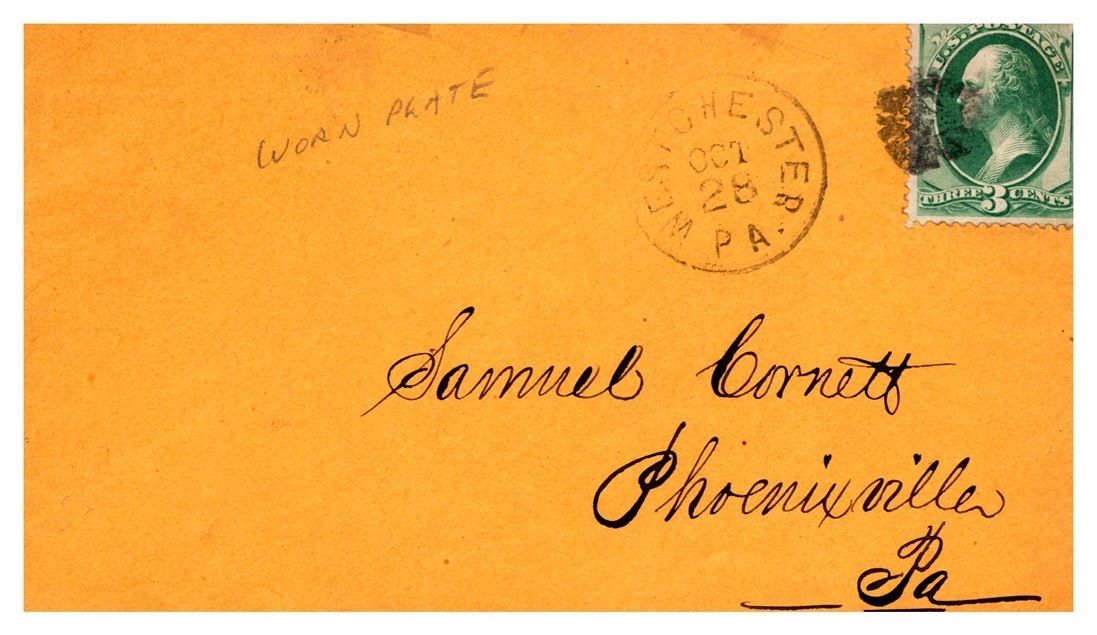 WORN PLATE
WEST CHESTER
OCT
28
PA.
U.S. POSTAGE
THREE 3 CENTS
Samuel Cornett
Phoenixville
Pa